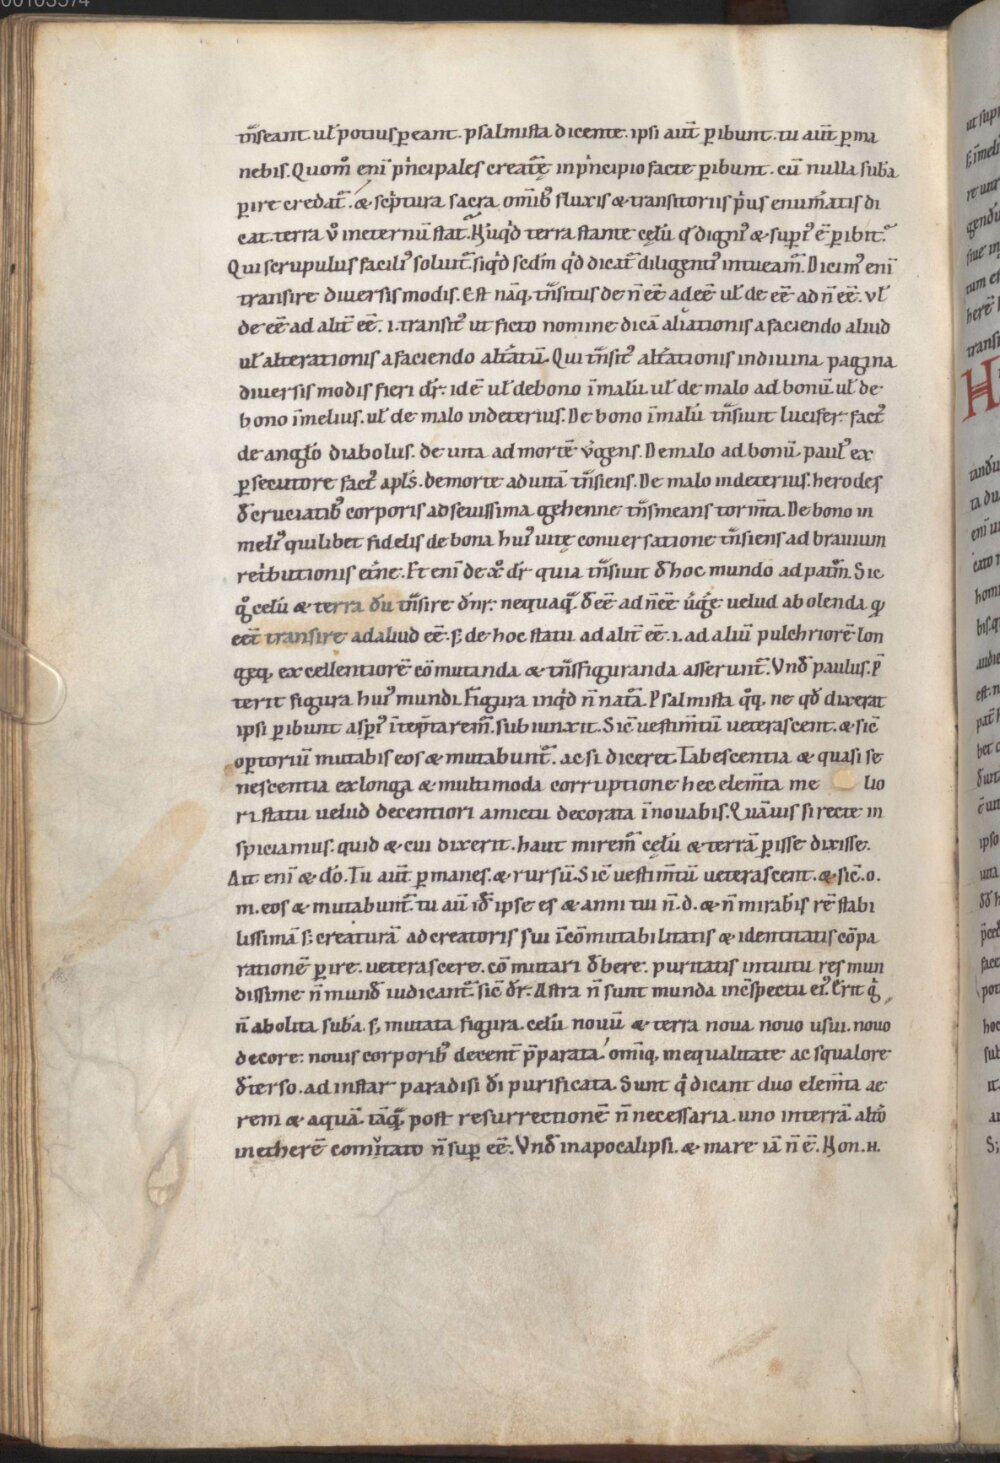 00103574
t̅nseant ul̛ potius ꝑeant. psalmista dicente. ipsi aut̅ ꝑibunt. tu aut̅ ꝑma
nebis. Quom̊ eni̅ pͥncipales creat̅ę inpͥncipio facte ꝑibunt. cu̅ nulla sub̛a
ꝑire credat̅. & scͥptura sacra om̅ib᷒ fluxis & transitoriis pͥus enum̛atis di
cat. terra v̊ ineternu̅ stat. Nu̅qͥd terra stante cęlu̅ qd̛ digni᷒ & supi᷒ e̅ ꝑibit.
Qui scrupulus facili᷒ soluit̅. siqͥd sedm̅ qͦd dicat̅ diligenti᷒ intueam̅. Dicim᷒ eni̅
transire diuersis modis. Est na̅q, t̅nsitus de n̅ ee̅ ad ee̅ ul̛ de ee̅ ad n̅ ee̅. vl̛
de ee̅ ad alit̅ ee̅. .i. transit᷒ ut ficto nomine dica̅ aliationis a faciendo aliud
ul̛ alterationis a faciendo alt̛atu̅. Qui t̅nsit᷒ alt̛ationis indiuina pagina
diuersis modis fieri dr̅. id e̅ ul̛ debono i̅ malu̅. ul̛ de malo ad bonu̅ ul̛ de
bono i̅melius. ul̛ de malo indeterius. De bono i̅malu̅ t̅nsiuit lucifer. fact᷒
de anglo̅ diabolus. de uita ad morte̅ v̛gens. Demalo ad bonu̅. paul᷒ ex
ꝑsecutore fact᷒ apl̅s. demorte ad uita̅ t̅nsiens. De malo indeterius. herodes
d̛ cruciatib᷒ corporis ad seuissima gehenne t̅nsmeans torm̅ta. De bono in
meli᷒ quilibet fidelis de bona hui᷒ uitę conuersatione t̅nsiens ad brauium
ret̛butionis et̛ne. Et eni̅ de xͦ dr̅ quia t̅nsiuit d̛ hoc mundo ad patre̅. Sic
gͦ celu̅ & terra du̅ t̅nsire dn̅r. nequaq̅ d̛ ee̅ ad n̅ ee̅ ưgͤe uelud abolenda q̛
eet̅ transire ad aliud ee̅. s; de hoc statu ad alit̅ ee̅. .i. ad aliu̅ pulchriore̅ lon
geq, excellentiore̅ co̅mutanda & t̅nsfiguranda asserunt̅. Vnd̛ paulus. p̅
terit figura hui᷒ mundi. Figura inqͥd n̅ nat̅a. Psalmista qͦq, ne qd̛ dixerat
ipsi ꝑibunt aspi᷒ i̅tep̅tarem̅. subiunxit. Sic̅ uestim̅tu̅ ueterascent. & sic̅
optoriu̅ mutabis eos & mutabunt̅. ac si diceret. Tabescentia & quasi se
nescentia exlonga & multimoda corruptione hec elem̅ta me lio
ri statu uelud decentiori amictu decorata i̅nouabis. Qua̅uis si recte in
spiciamus. quid & cui dixerit. haut mirem̅ cęlu̅ & terra̅ ꝑisse dixisse.
Ait eni̅ & do̅. Tu aut̅ ꝑmanes. & rursu̅. Sic̅ uestim̅tu̅ ueterascent. & sic̅. o.
m. eos & mutabunt̅. tu au̅ id̅ ipse es & anni tui n̅. d. & n̅ mirab̛is re̅ stabi
lissima̅ s: creatura̅ ad creatoris sui i̅co̅mutabilitatis & identitatis co̅pa
ratione̅ ꝑire. ueterascere. co̅mutari d̛bere. puritatis intuitu res mun
dissime n̅ mund̛ iudicant̅. sic̅ dr̅. Astra n̅ sunt munda inc̅spectu ei᷒. Erit gͥ,
n̅ abolita sub̛a. s; mutata figura. celu̅ nouu̅ & terra noua nouo usui. nouo
decore. nouis corporib᷒ decent̅ p̅parata. om̅iq, inequalitate ac squalore
d̛terso. ad instar paradisi di̅ purificata. Sunt qͥ dicant duo elem̅ta ae
rem & aqua̅ ta̅q̅ post resurrectione̅ n̅ necessaria. uno interra̅. alt̛o
inethere̅ comͥtato n̅ suꝑ ee̅. Vnd̛ inapocalipsi. & mare ia̅ n̅ e̅. Non. H.